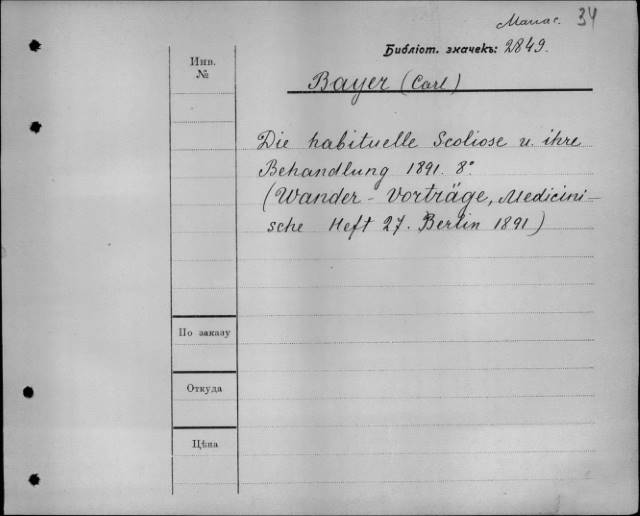 34
Библіот. значекъ: 2849.
Инв.
№
Bayer (Carl)
Die habituelle Scoliose u. ihre
Behandlung 1891. 8°
(Wander - Vorträge, Medicini-
sche Heft 27. Berlin 1891)
По заказу
Откуда
Цѣна